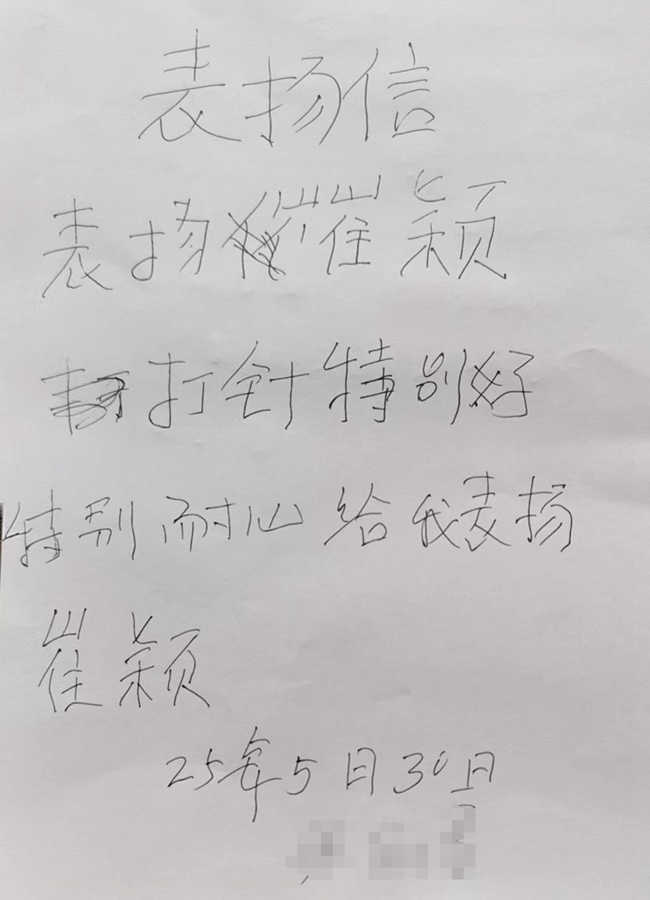 表扬信
表扬崔颖
打针特别好
特别耐心给我表扬
崔颖
25年5日30日